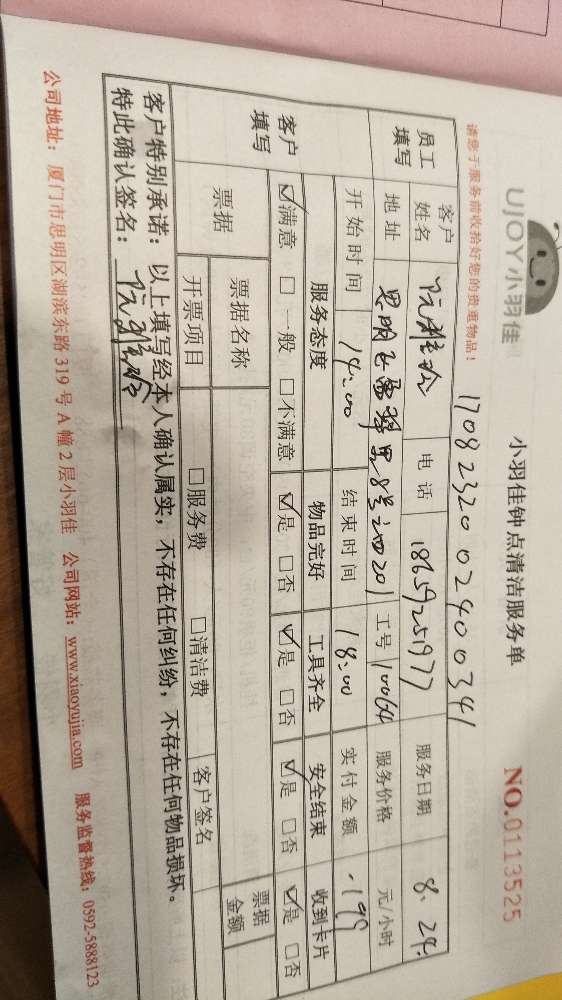 UJOY小羽佳 小羽佳钟点清洁服务单 NO.0113525
请您于服务前收拾好您的贵重物品！ 17082320024000341
员工填写 客户姓名 阮雅玲 电话 18659251977 服务日期 8.24.
地址 思明区 201 工号 10064 服务价格 元/小时
开始时间 14:00 结束时间 18:00 实付金额 -199
客户填写 服务态度 物品完好 工具齐全 安全结束 收到卡片
☑满意 □一般 □不满意 ☑是 □否 ☑是 □否 ☑是 □否 ☑是 □否
票据 票据名称 票据金额
开票项目 □服务费 □清洁费 客户签名
客户特别承诺：以上填写经本人确认属实，不存在任何纠纷，不存在任何物品损坏。
特此确认签名：阮雅玲
公司地址：厦门市思明区湖滨东路 319 号 A 幢 2 层小羽佳 公司网站：www.xiaoyujia.com 服务监督热线：0592-5888123